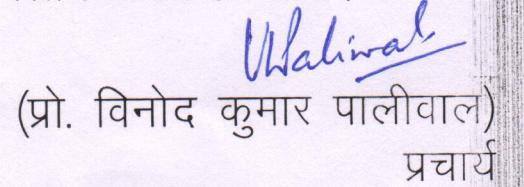 VKPaliwal
(प्रो. विनोद कुमार पालीवाल)
प्रचार्य